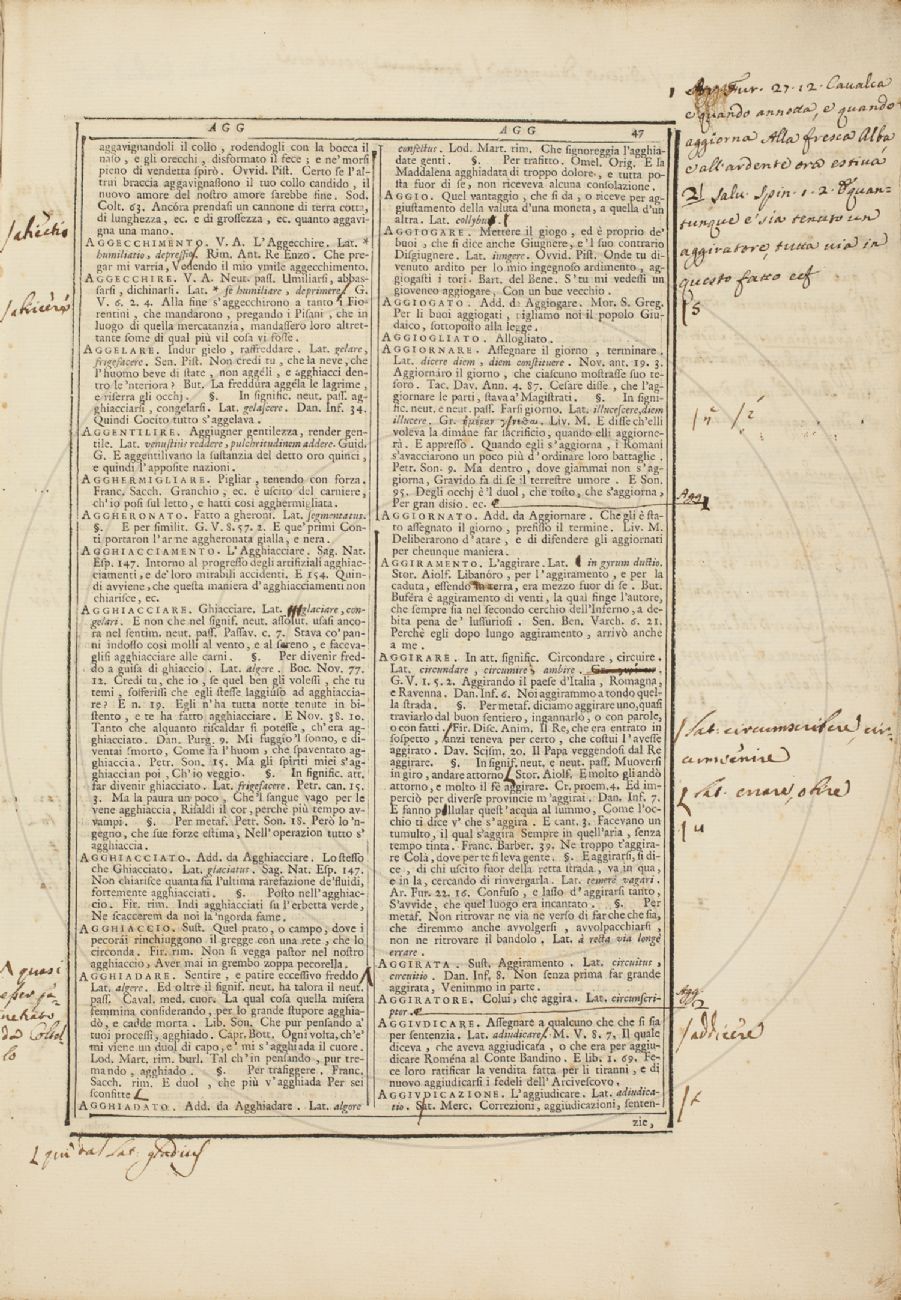 AGG
AGG 47
aggavignandoli il collo, rodendogli con la bocca il
naſo, e gli orecchi, disformato il fece; e ne' morſi
pieno di vendetta ſpirò. Ovvid. Piſt. Certo ſe l'al-
trui braccia aggavignaſſono il tuo collo candido, il
nuovo amore del noſtro amore ſarebbe fine. Sod.
Colt. 63. Ancóra prendaſi un cannone di terra cotta,
di lunghezza, ec. e di groſſezza, ec. quanto aggavi-
gna una mano.
AGGECCHIMENTO. V. A. L'Aggecchire. Lat. *
humiliatio, depreſſio. Rim. Ant. Re Enzo. Che pre-
gar mi varria, Vedendo il mio vmile aggecchimento.
AGGECCHIRE. V. A. Neut. paſſ. Umiliarſi, abbaſ-
ſarſi, dichinarſi. Lat. * ſe humiliare, deprimere. G.
V. 6. 2. 4. Alla fine s'aggecchirono a tanto i Fio-
rentini, che mandarono, pregando i Piſani, che in
luogo di quella mercatanzia, mandaſſero loro altret-
tante ſome di qual più vil coſa vi foſſe.
AGGELARE. Indur gielo, raffreddare. Lat. gelare,
frigefacere. Sen. Piſt. Non credi tu, che la neve, che
l'huomo beve di ſtate, non aggéli, e agghiacci den-
tro le 'nteriora? But. La freddúra aggéla le lagrime,
e riſerra gli occhj. §. In ſignific. neut. paſſ. ag-
ghiacciarſi, congelarſi. Lat. gelaſcere. Dan. Inf. 34.
Quindi Cocito tutto s'aggelava.
AGGENTILIRE. Aggiugner gentilezza, render gen-
tile. Lat. venuſtiũ reddere, pulchritudinem addere. Guid.
G. E aggentilivano la ſuſtanzia del detto oro quinci,
e quindi l'appoſite nazioni.
AGGHERMIGLIARE. Pigliar, tenendo con forza.
Franc. Sacch. Granchio, ec. è uſcito del carniere,
ch'io poſi ſul letto, e hatti così agghermigliata.
AGGHERONATO. Fatto a gheroni. Lat. ſegmentatus.
§. E per ſimilit. G. V. 8. 57. 2. E que' primi Con-
ti portaron l'arme aggheronata gialla, e nera.
AGGHIACCIAMENTO. L'Agghiacciare. Sag. Nat.
Eſp. 147. Intorno al progreſſo degli artifiziali agghiac-
ciamenti, e de' loro mirabili accidenti. E 154. Quin-
di avviene, che queſta maniera d'agghiacciamenti non
chiariſce, ec.
AGGHIACCIARE. Ghiacciare. Lat. glaciare, con-
gelari. E non che nel ſignif. neut. aſſolut. uſaſi anco-
ra nel ſentim. neut. paſſ. Paſſav. c. 7. Stava co' pan-
ni indoſſo così molli al vento, e al ſereno, e faceva-
gliſi agghiacciare alle carni. §. Per divenir fred-
do a guiſa di ghiaccio. Lat. algere. Boc. Nov. 77.
12. Credi tu, che io, ſe quel ben gli voleſſi, che tu
temi, ſofferiſſi che egli ſteſſe laggiuſo ad agghiaccia-
re? E n. 19. Egli n'ha tutta notte tenute in bi-
ſtento, e te ha fatto agghiacciare. E Nov. 38. 10.
Tanto che alquanto riſcaldar ſi poteſſe, ch'era ag-
ghiacciato. Dan. Purg. 9. Mi fuggio 'l ſonno, e di-
ventai ſmorto, Come fa l'huom, che ſpaventato ag-
ghiaccia. Petr. Son. 15. Ma gli ſpiriti miei s'ag-
ghiaccian poi, Ch'io veggio. §. In ſignific. att.
far divenir ghiacciato. Lat. frigefacere. Petr. can. 15.
3. Ma la paura un poco, Che 'l ſangue vago per le
vene agghiaccia, Riſaldi il cor, perchè più tempo av-
vampi. §. Per metaf. Petr. Son. 18. Però lo 'n-
gegno, che ſue forze eſtima, Nell'operazion tutto s'
agghiaccia.
AGGHIACCIATO. Add. da Agghiacciare. Lo ſteſſo
che Ghiacciato. Lat. glaciatus. Sag. Nat. Eſp. 147.
Non chiariſce quanta ſia l'ultima rarefazione de' fluidi,
fortemente agghiacciati. §. Poſto nell'agghiac-
cio. Fir. rim. Indi agghiacciati ſu l'erbetta verde,
Ne ſcaccerem da noi la 'ngorda fame.
AGGHIACCIO. Suſt. Quel prato, o campo, dove i
pecorai rinchiuggono il gregge con una rete, che lo
circonda. Fir. rim. Non ſi vegga paſtor nel noſtro
agghiaccio, Aver mai in grembo zoppa pecorella.
AGGHIADARE. Sentire, e patire ecceſſivo freddo.
Lat. algere. Ed oltre il ſignif. neut. ha talora il neut.
paſſ. Caval. med. cuor. La qual coſa quella miſera
femmina conſiderando, per lo grande ſtupore agghia-
dò, e cadde morta. Lib. Son. Che pur penſando a'
tuoi proceſſi, agghiado. Capr. Bott. Ogni volta, ch'e'
mi viene un dual di capo, e' mi s'agghiada il cuore.
Lod. Mart. rim. burl. Tal ch'in penſando, pur tre-
mando, agghiado. §. Per trafiggere. Franc.
Sacch. rim. E duol, che più v'agghiada Per sei
ſconfitte
AGGHIADATO. Add. da Agghiadare. Lat. algore
confectus. Lod. Mart. rim. Che ſignoreggia l'agghia-
date genti. §. Per trafitto. Omel. Orig. E la
Maddalena agghiadata di troppo dolore, e tutta po-
ſta fuor di ſe, non riceveva alcuna conſolazione.
AGGIO. Quel vantaggio, che ſi da, o riceve per ag-
giuſtamento della valuta d'una moneta, a quella d'un
altra. Lat. collybus.
AGGIOGARE. Mettere il giogo, ed è proprio de'
buoi, che ſi dice anche Giugnere, e 'l ſuo contrario
Diſgiugnere. Lat. iungere. Ovvid. Piſt. Onde tu di-
venuto ardito per lo mio ingegnoso ardimento, ag-
giogaſti i tori. Bart. del Bene. S'tu mi vedeſſi un
giovenco aggiogare, Con un bue vecchio.
AGGIOGATO. Add. da Aggiogare. Mor. S. Greg.
Per li buoi aggiogati, pigliamo noi il popolo Giu-
daico, ſottopoſto alla legge.
AGGIOGLIATO. Allogliato.
AGGIORNARE. Aſſegnare il giorno, terminare.
Lat. dicere diem, diem conſtituere. Nov. ant. 19. 3.
Aggiornáro il giorno, che ciaſcuno moſtraſſe ſuo te-
ſoro. Tac. Dav. Ann. 4. 87. Ceſare diſſe, che l'ag-
giornare le parti, ſtava a' Magiſtrati. §. In ſigni-
fic. neut. e neut. paſſ. Farſi giorno. Lat. illuceſcere, diem
illucere. Gr. ἡμέραν γίνεσθαι. Liv. M. E diſſe ch'elli
voleva la dimane far ſacrificio, quando elli aggiorne-
rà. E appreſſo. Quando egli s'aggiorna, i Romani
s'avacciarono un poco più d'ordinare loro battaglie.
Petr. Son. 9. Ma dentro, dove giammai non s'ag-
giorna, Gravido fa di ſe il terreſtre umore. E Son.
95. Degli occhj è 'l duol, che toſto, che s'aggiorna,
Per gran diſio. ec.
AGGIORNATO. Add. da Aggiornare. Che gli è ſta-
to aſſegnato il giorno, prefiſſo il termine. Liv. M.
Deliberarono d'atare, e di difendere gli aggiornati
per cheunque maniera.
AGGIRAMENTO. L'aggirare. Lat. in gyrum ductio.
Stor. Aiolf. Libanóro, per l'aggiramento, e per la
caduta, eſſendo in terra, era mezzo fuor di ſe. But.
Buféra è aggiramento di venti, la qual finge l'autore,
che ſempre ſia nel ſecondo cerchio dell'Inferno, a de-
bita pena de' luſſurioſi. Sen. Ben. Varch. 6. 21.
Perchè egli dopo lungo aggiramento, arrivò anche
a me.
AGGIRARE. In att. ſignific. Circondare, circuire.
Lat. circundare, circumire, ambire.
G. V. 1. 5. 2. Aggirando il paeſe d'Italia, Romagna,
e Ravenna. Dan. Inf. 6. Noi aggirammo a tondo quel-
la ſtrada. §. Per metaf. diciamo aggirare uno, quaſi
traviarlo dal buon ſentiero, ingannarlo, o con parole,
o con fatti. Fir. Diſc. Anim. Il Re, che era entrato in
ſoſpetto, anzi teneva per certo, che coſtui l'aveſſe
aggirato. Dav. Sciſm. 20. Il Papa veggendoſi dal Re
aggirare. §. In ſignif. neut. e neut. paſſ. Muoverſi
in giro, andare attorno. Stor. Aiolf. E molto gli andò
attorno, e molto il fè aggirare. Cr. proem. 4. Ed im-
perciò per diverſe provincie m'aggirai. Dan. Inf. 7.
E fanno pullular queſt'acqua al ſummo, Come l'oc-
chio ti dice v' che s'aggira. E cant. 3. Facevano un
tumulto, il qual s'aggira Sempre in quell'aria, ſenza
tempo tinta. Franc. Barber. 39. Ne troppo t'aggira-
re Colà, dove per te ſi leva gente. §. E aggirarſi, ſi di-
ce, di chi uſcito fuor della retta ſtrada, va in qua,
e in la, cercando di rinvergarla. Lat. temerè vagari.
Ar. Fur. 22. 16. Confuſo, e laſſo d'aggirarſi tanto,
S'avvide, che quel luogo era incantato. §. Per
metaf. Non ritrovar ne via ne verſo di far che che ſia,
che diremmo anche avvolgerſi, avvolpacchiarſi,
non ne ritrovare il bandolo. Lat. à recta via longè
errare.
AGGIRATA. Suſt. Aggiramento. Lat. circuitur,
circuitio. Dan. Inf. 8. Non ſenza prima far grande
aggirata, Venimmo in parte.
AGGIRATORE. Colui, che aggira. Lat. circumſcri-
ptor.
AGGIVDICARE. Aſſegnare a qualcuno che che ſi ſia
per ſentenzia. Lat. adiudicare. M. V. 8. 7. Il quale
diceva, che aveva aggiudicata, o che era per aggiu-
dicare Roména al Conte Bandino. E lib. 1. 69. Fe-
ce loro ratificar la vendita fatta per li tiranni, e di
nuovo aggiudicarſi i fedeli dell'Arcivescovo.
AGGIVDICAZIONE. L'aggiudicare. Lat. adiudica-
tio. Sat. Merc. Correzioni, aggiudicazioni, senten-
zie,
Fur. 27. 12. Cavalca
e quando annoda, e quando
aggiorna Alla fresca Alba
e all'ardente ora estiva
Salv. Spin. 1. 2. Quan-
tunque e' sia tenuto un
aggiratore, tutta via in
questo fatto ec.
Agg
Lat. circumscribere, cir-
cumvenire
Lat. errare
Agg.
addicere
quasi
da
qui dal Lat. gladius